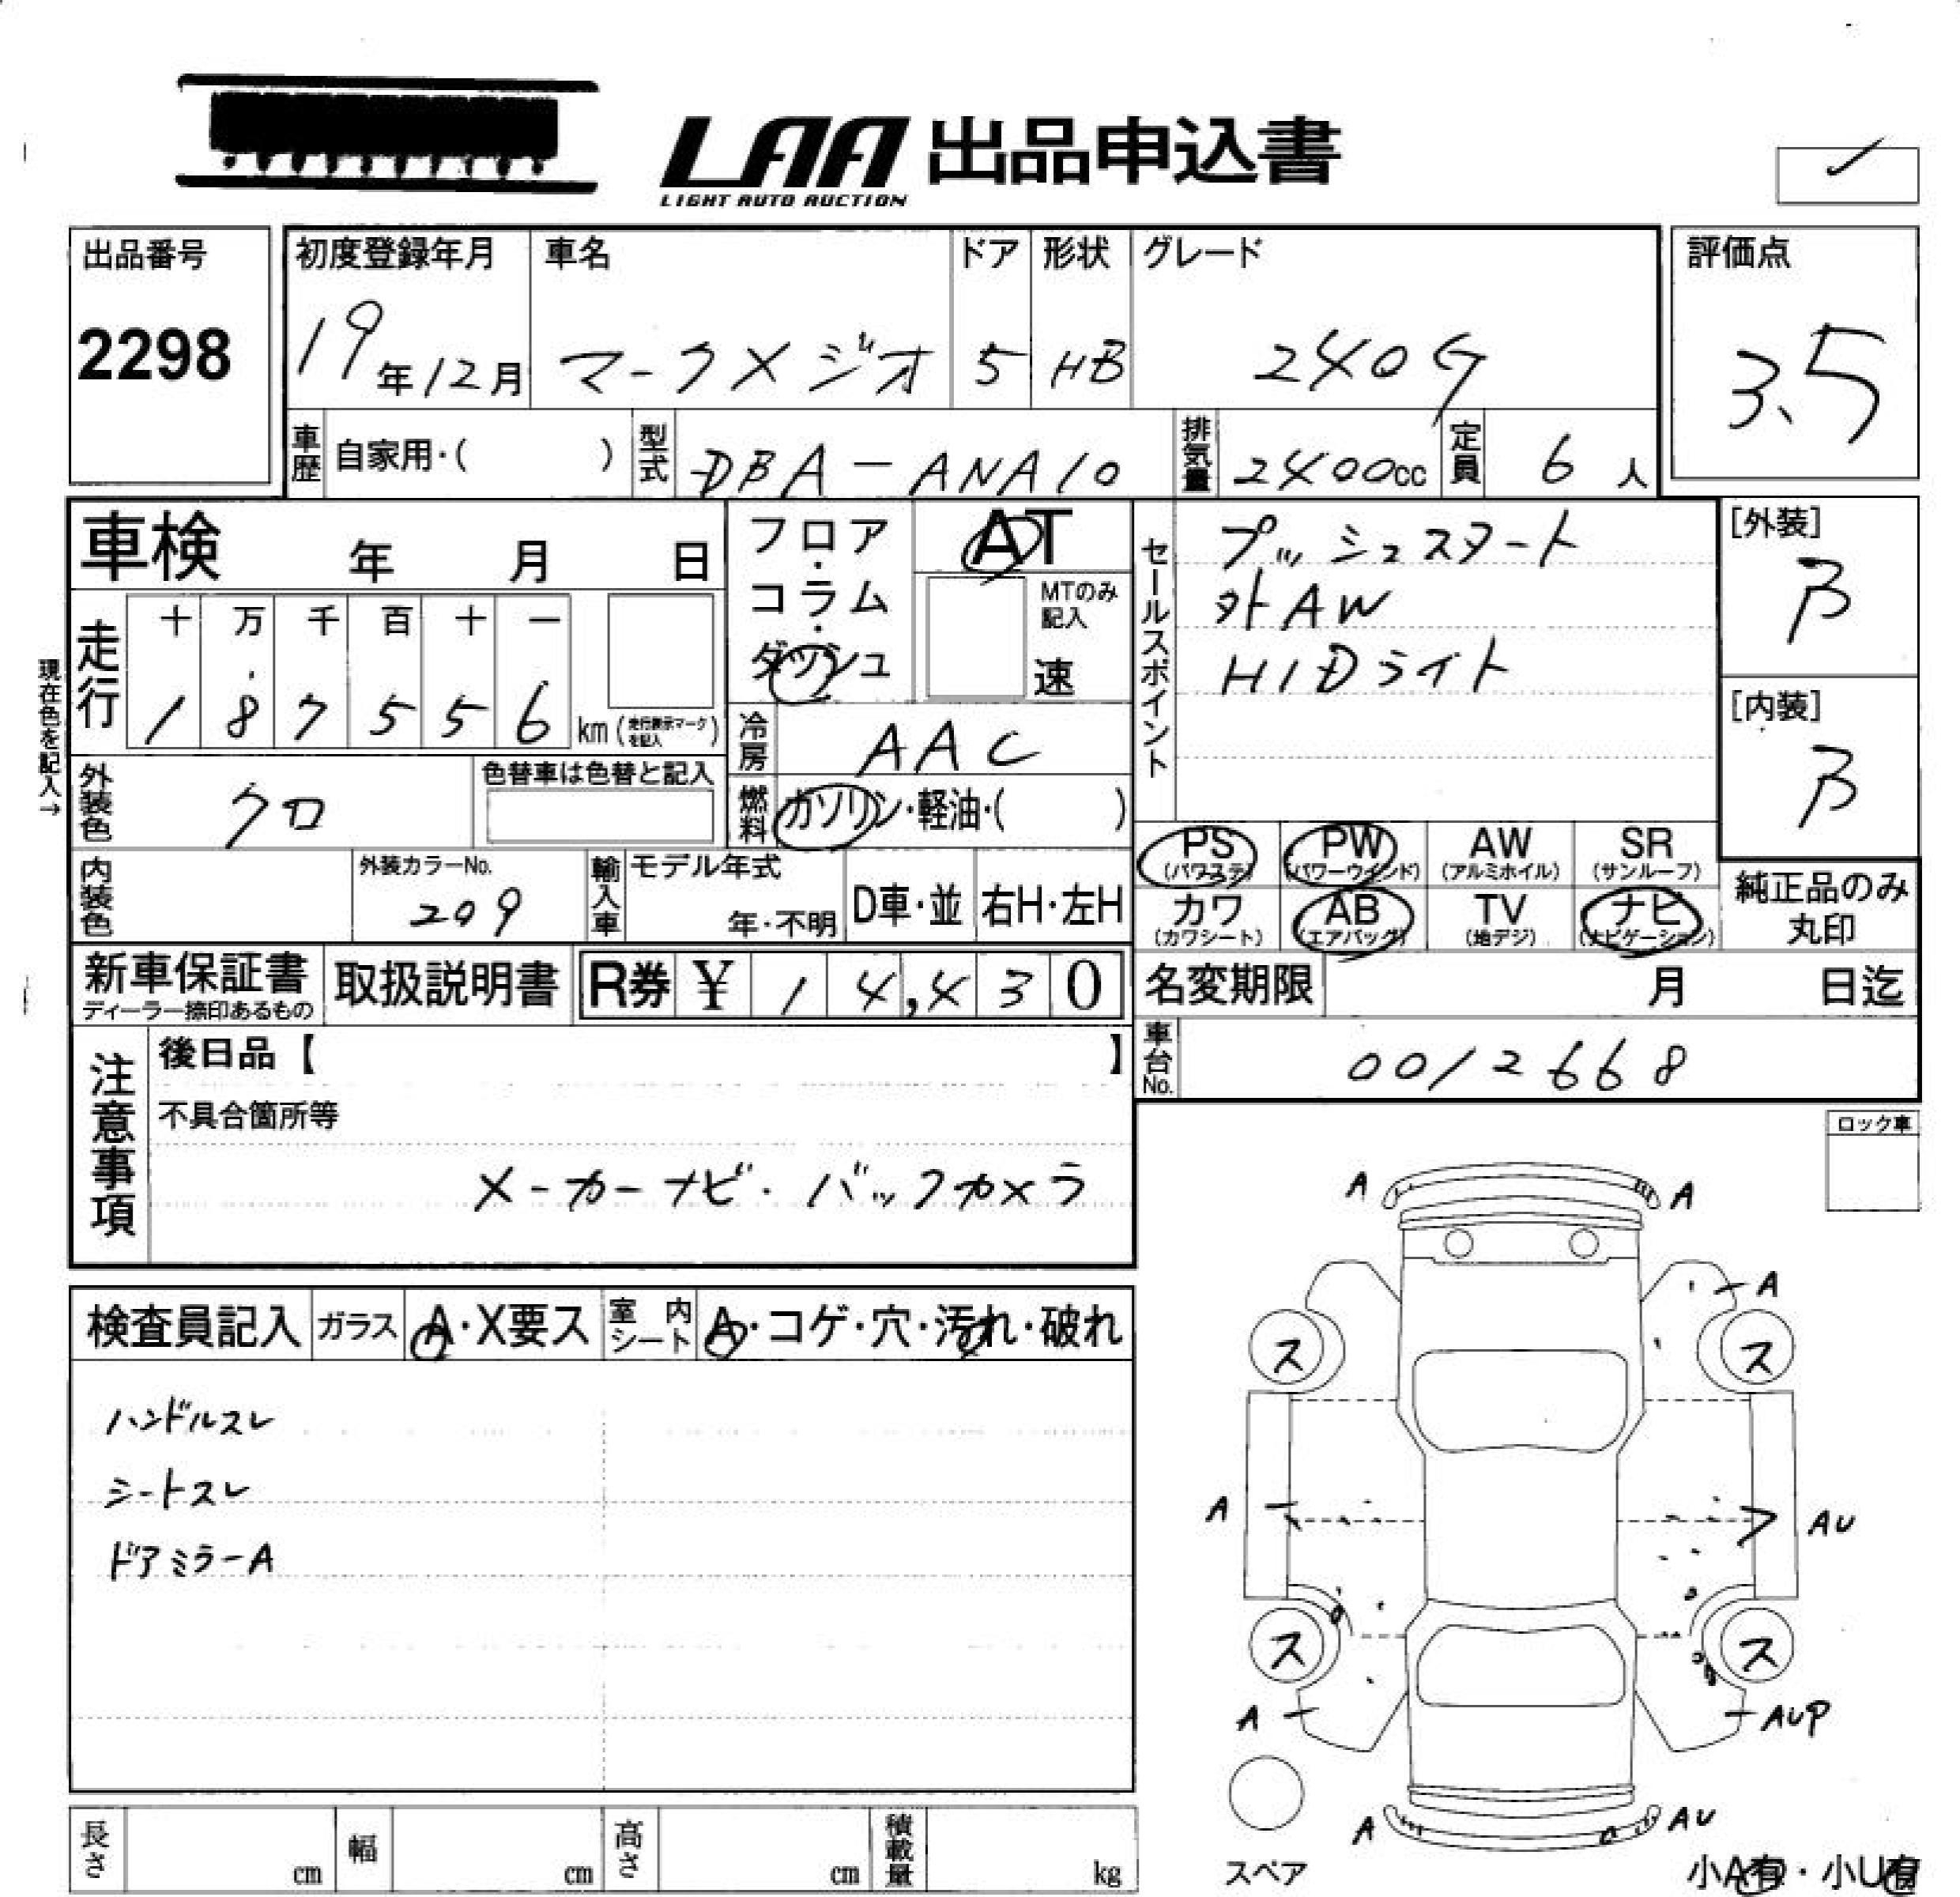 LAA 出品申込書
LIGHT AUTO AUCTION
出品番号
2298
初度登録年月
19年12月
車名
マークXジオ
ドア
5
形状
HB
グレード
240G
評価点
3.5
車歴
自家用・( )
型式
DBA-ANA10
排気量
2400cc
定員
6人
車検 年 月 日
フロア・コラム・ダッシュ
AT
MTのみ記入
速
セールスポイント
プッシュスタート
外AW
HIDライト
[外装]
B
[内装]
B
現在色を記入→
走行
十 万 千 百 十 一
1 8 7 5 5 6 km (走行表示マークを記入)
冷房
AAC
外装色
クロ
色替車は色替と記入
燃料
ガソリン・軽油・( )
PS (パワステ)
PW (パワーウインド)
AW (アルミホイル)
SR (サンルーフ)
カワ (カワシート)
AB (エアバッグ)
TV (地デジ)
ナビ (ナビゲーション)
純正品のみ丸印
内装色
外装カラーNo.
209
輸入車
モデル年式
年・不明
D車・並
右H・左H
新車保証書
ディーラー捺印あるもの
取扱説明書
R券 ¥ 14,430
名変期限 月 日迄
車台No.
0012668
注意事項
後日品【 】
不具合箇所等
メーカーナビ・バックカメラ
ロック車
検査員記入
ガラス
A・X要ス
室内シート
A・コゲ・穴・汚れ・破れ
ハンドルスレ
シートスレ
ドアミラーA
A A
A
ス ス
A AU
ス ス
A AUP
A AU
スペア
小A有・小U有
長さ cm
幅 cm
高さ cm
積載量 kg